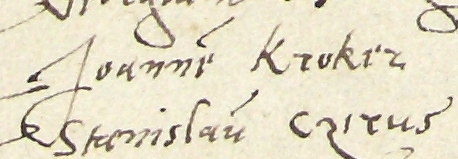 Joannē Kroker
Stanislaū Czirus